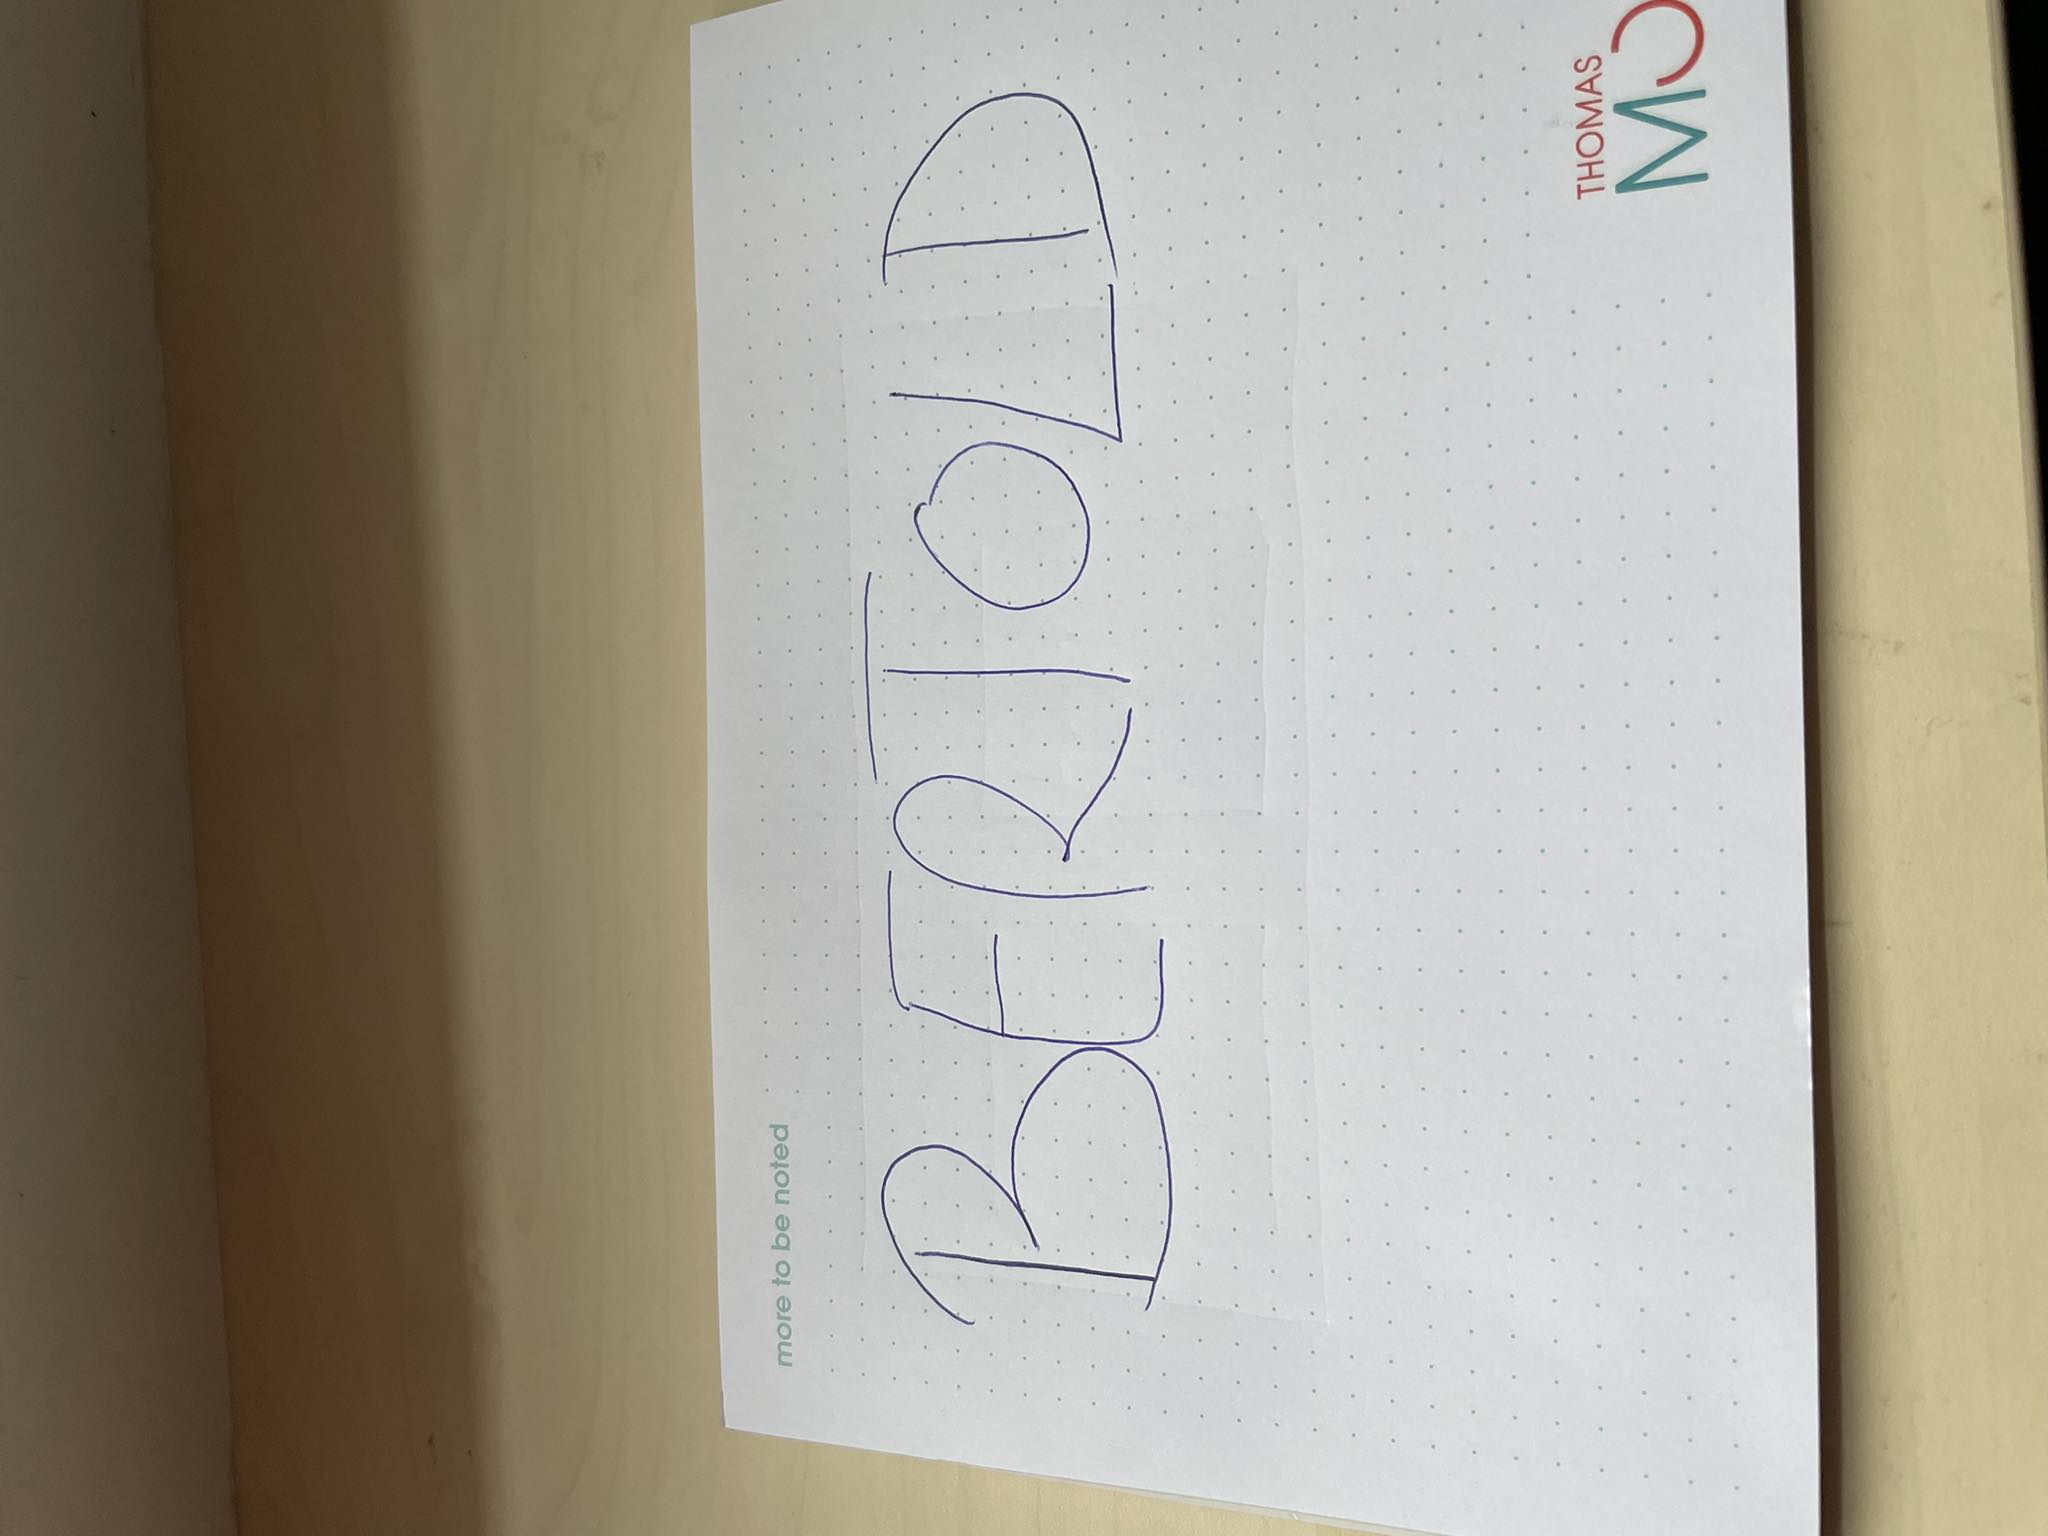 more to be noted
BERTOLD
THOMAS
MC